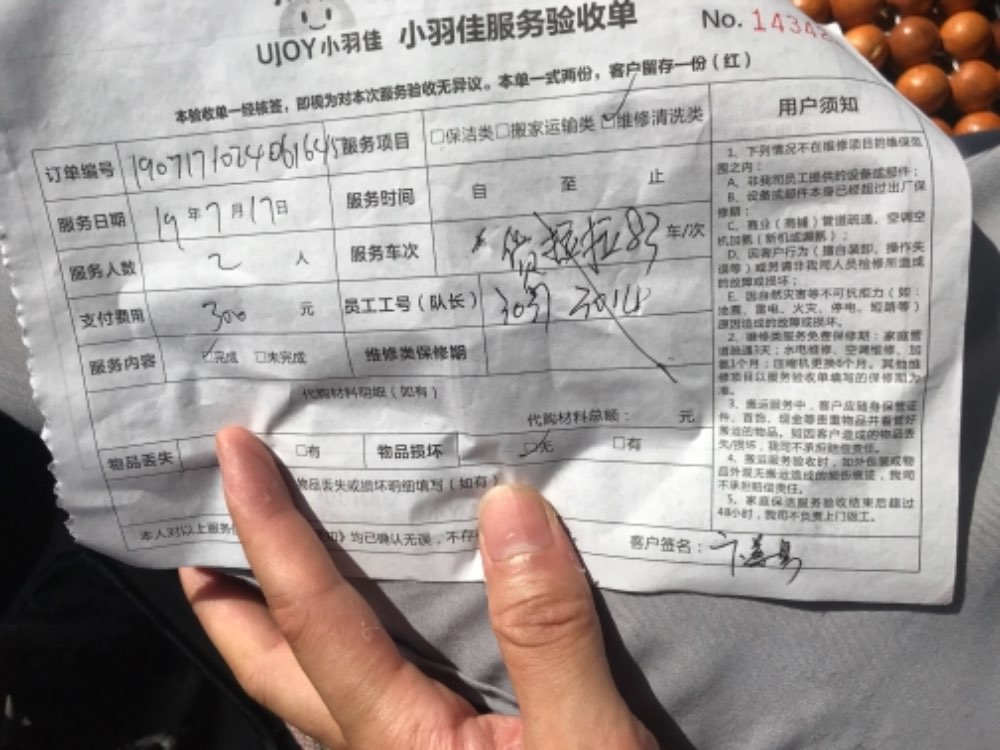 UJOY小羽佳 小羽佳服务验收单
No. 1434
本验收单一经核签，即视为对本次服务验收无异议。本单一式两份，客户留存一份（红）
订单编号 1907171024061645 服务项目 □保洁类□搬家运输类☑维修清洗类
服务日期 19年7月17日 服务时间 自 至 止
服务人数 2 人 服务车次 货拉拉83 车/次
支付费用 300 元 员工工号（队长）
服务内容 ☑完成 □未完成 维修类保修期
代购材料明细（如有）
代购材料总额： 元
物品丢失 □有 物品损坏 ☑无 □有
物品丢失或损坏明细填写（如有）
本人对以上服务 均已确认无误，不存 客户签名：
用户须知
1、下列情况不在维修项目的维保范
围之内：
A、非我司员工提供的设备或部件；
B、设备或部件本身已经超过出厂保
修期；
C、商业（商铺）管道疏通、空调空
机加氟（新机或漏氟）；
D、因客户行为（擅自装卸、操作失
误等）或另请非我司人员检修所造成
的故障或损坏；
E、因自然灾害等不可抗能力（如：
地震、雷电、火灾、停电、短路等）
原因造成的故障或损坏。
2、维修类服务免费保修期：家庭管
道疏通3天；水电维修、空调维修、加
氟1个月；压缩机更换6个月。其他维
修项目以服务验收单填写的保修期为
准。
3、搬运服务中，客户应随身保管证
件、首饰、现金等贵重物品并看管好
搬运的物品。如因客户造成的物品丢
失/损坏，我司不承担赔偿责任。
4、搬运服务验收时，如外包装或物
品外观无搬运造成的损伤痕迹，我司
不承担赔偿责任。
5、家庭保洁服务验收结束后超过
48小时，我司不负责上门返工。